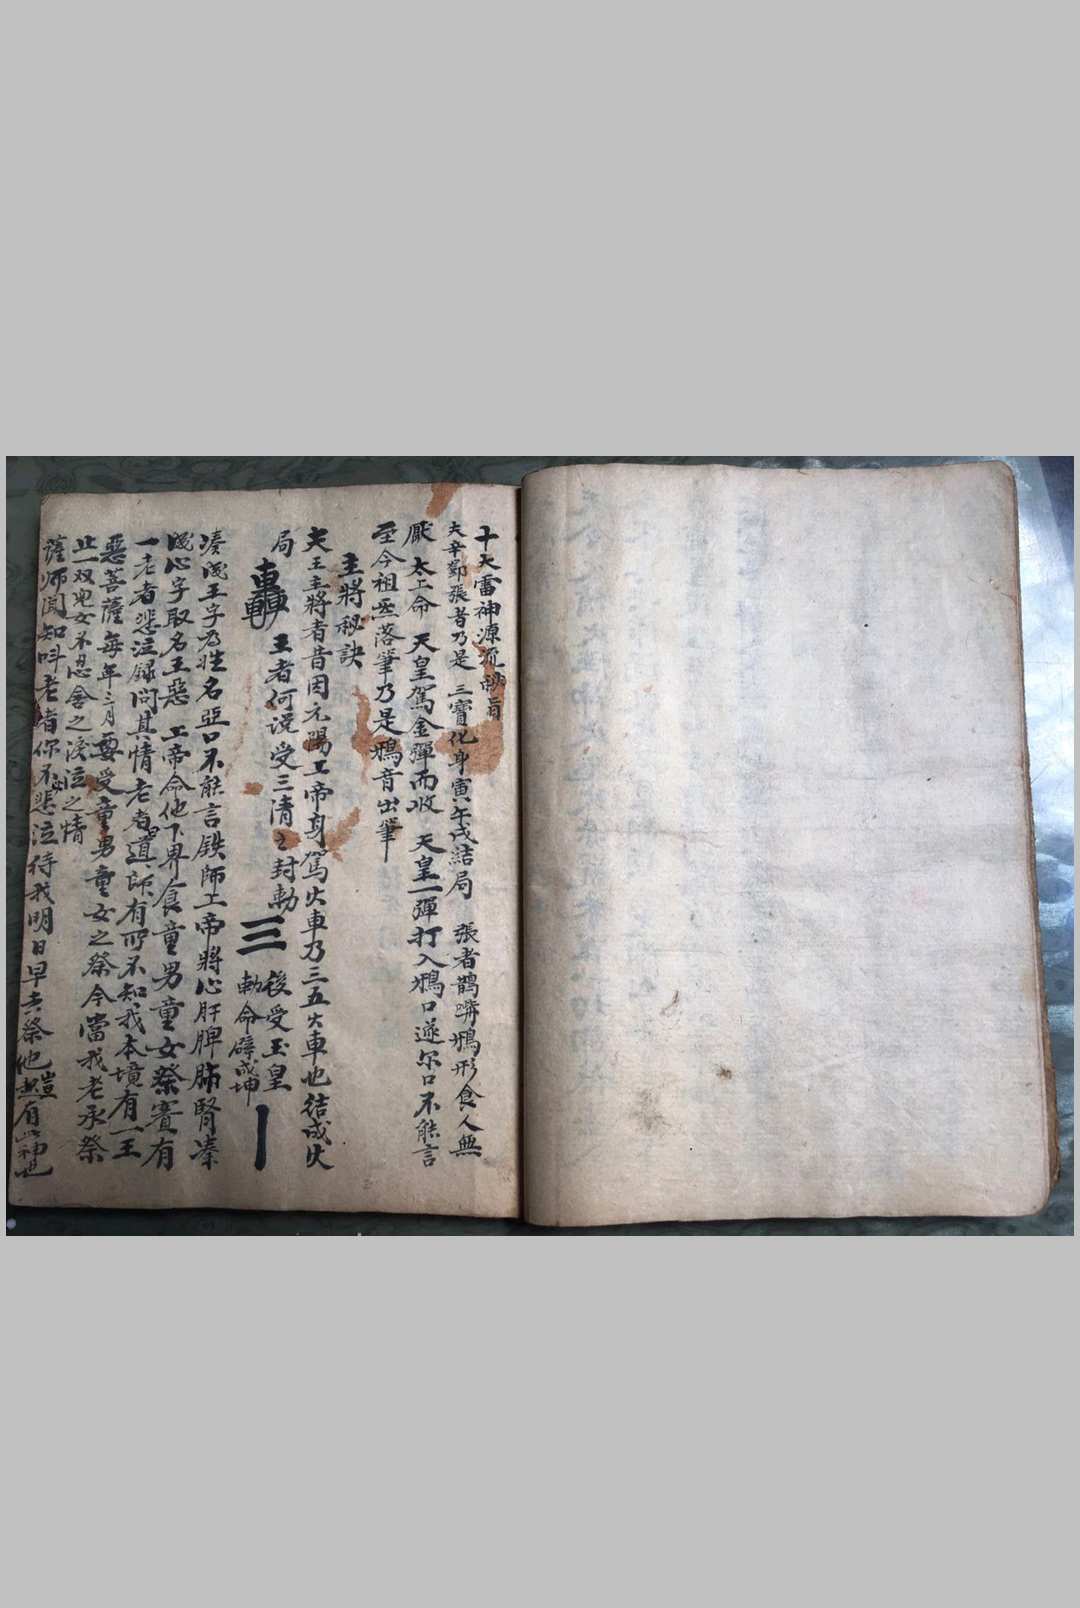 十天雷神源流祕旨
夫辛鄧張者乃是 三寶化身寅午戌結局 張者鵲嘴鴉形食人無
厭 太上命 天皇駕金彈而收 天皇一彈打入鴉口遂尔口不能言
至今祖落筆乃是鴉音出筆
主將秘訣
夫王主將者昔因元陽上帝身駕火車乃三五火車也結成火
局 轟 王者何说受三清之封勅 三 後受玉皇
勅命 成坤 丨
湊成王字为姓名亞口不能言铁師上帝將心肝脾肺腎湊
成心字取名王惡 上帝命他下界食童男童女祭賽有
一老者悲泣録問其情老者道師有所不知我本境有一王
惡菩薩每年三月要受童男童女之祭今當我老承祭
止一双児女不忍舍之淚泣之情
薩师闻知呌老者你不必悲泣待我明日早去祭他豈有此神也